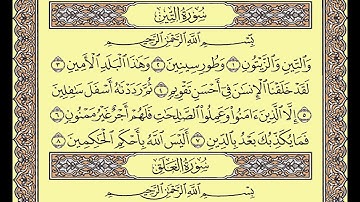 سُورَةُ التِّينِ
بِسْمِ اللَّهِ الرَّحْمَٰنِ الرَّحِيمِ
وَالتِّينِ وَالزَّيْتُونِ ١ وَطُورِ سِينِينَ ٢ وَهَٰذَا الْبَلَدِ الْأَمِينِ ٣
لَقَدْ خَلَقْنَا الْإِنسَانَ فِي أَحْسَنِ تَقْوِيمٍ ٤ ثُمَّ رَدَدْنَاهُ أَسْفَلَ سَافِلِينَ
٥ إِلَّا الَّذِينَ آمَنُوا وَعَمِلُوا الصَّالِحَاتِ فَلَهُمْ أَجْرٌ غَيْرُ مَمْنُونٍ ٦
فَمَا يُكَذِّبُكَ بَعْدُ بِالدِّينِ ٧ أَلَيْسَ اللَّهُ بِأَحْكَمِ الْحَاكِمِينَ ٨
سُورَةُ الْعَلَقِ
بِسْمِ اللَّهِ الرَّحْمَٰنِ الرَّحِيمِ